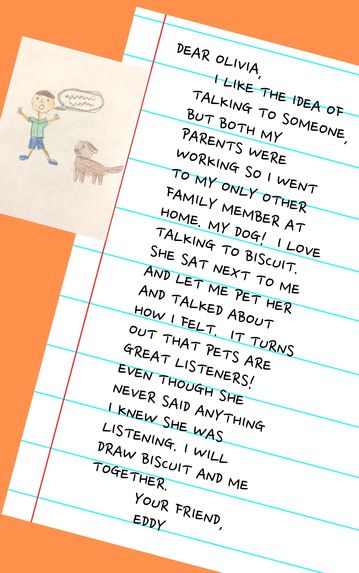 DEAR OLIVIA,
I LIKE THE IDEA OF
TALKING TO SOMEONE,
BUT BOTH MY
PARENTS WERE
WORKING SO I WENT
TO MY ONLY OTHER
FAMILY MEMBER AT
HOME. MY DOG! I LOVE
TALKING TO BISCUIT.
SHE SAT NEXT TO ME
AND LET ME PET HER
AND TALKED ABOUT
HOW I FELT. IT TURNS
OUT THAT PETS ARE
GREAT LISTENERS!
EVEN THOUGH SHE
NEVER SAID ANYTHING
I KNEW SHE WAS
LISTENING. I WILL
DRAW BISCUIT AND ME
TOGETHER.
YOUR FRIEND,
EDDY